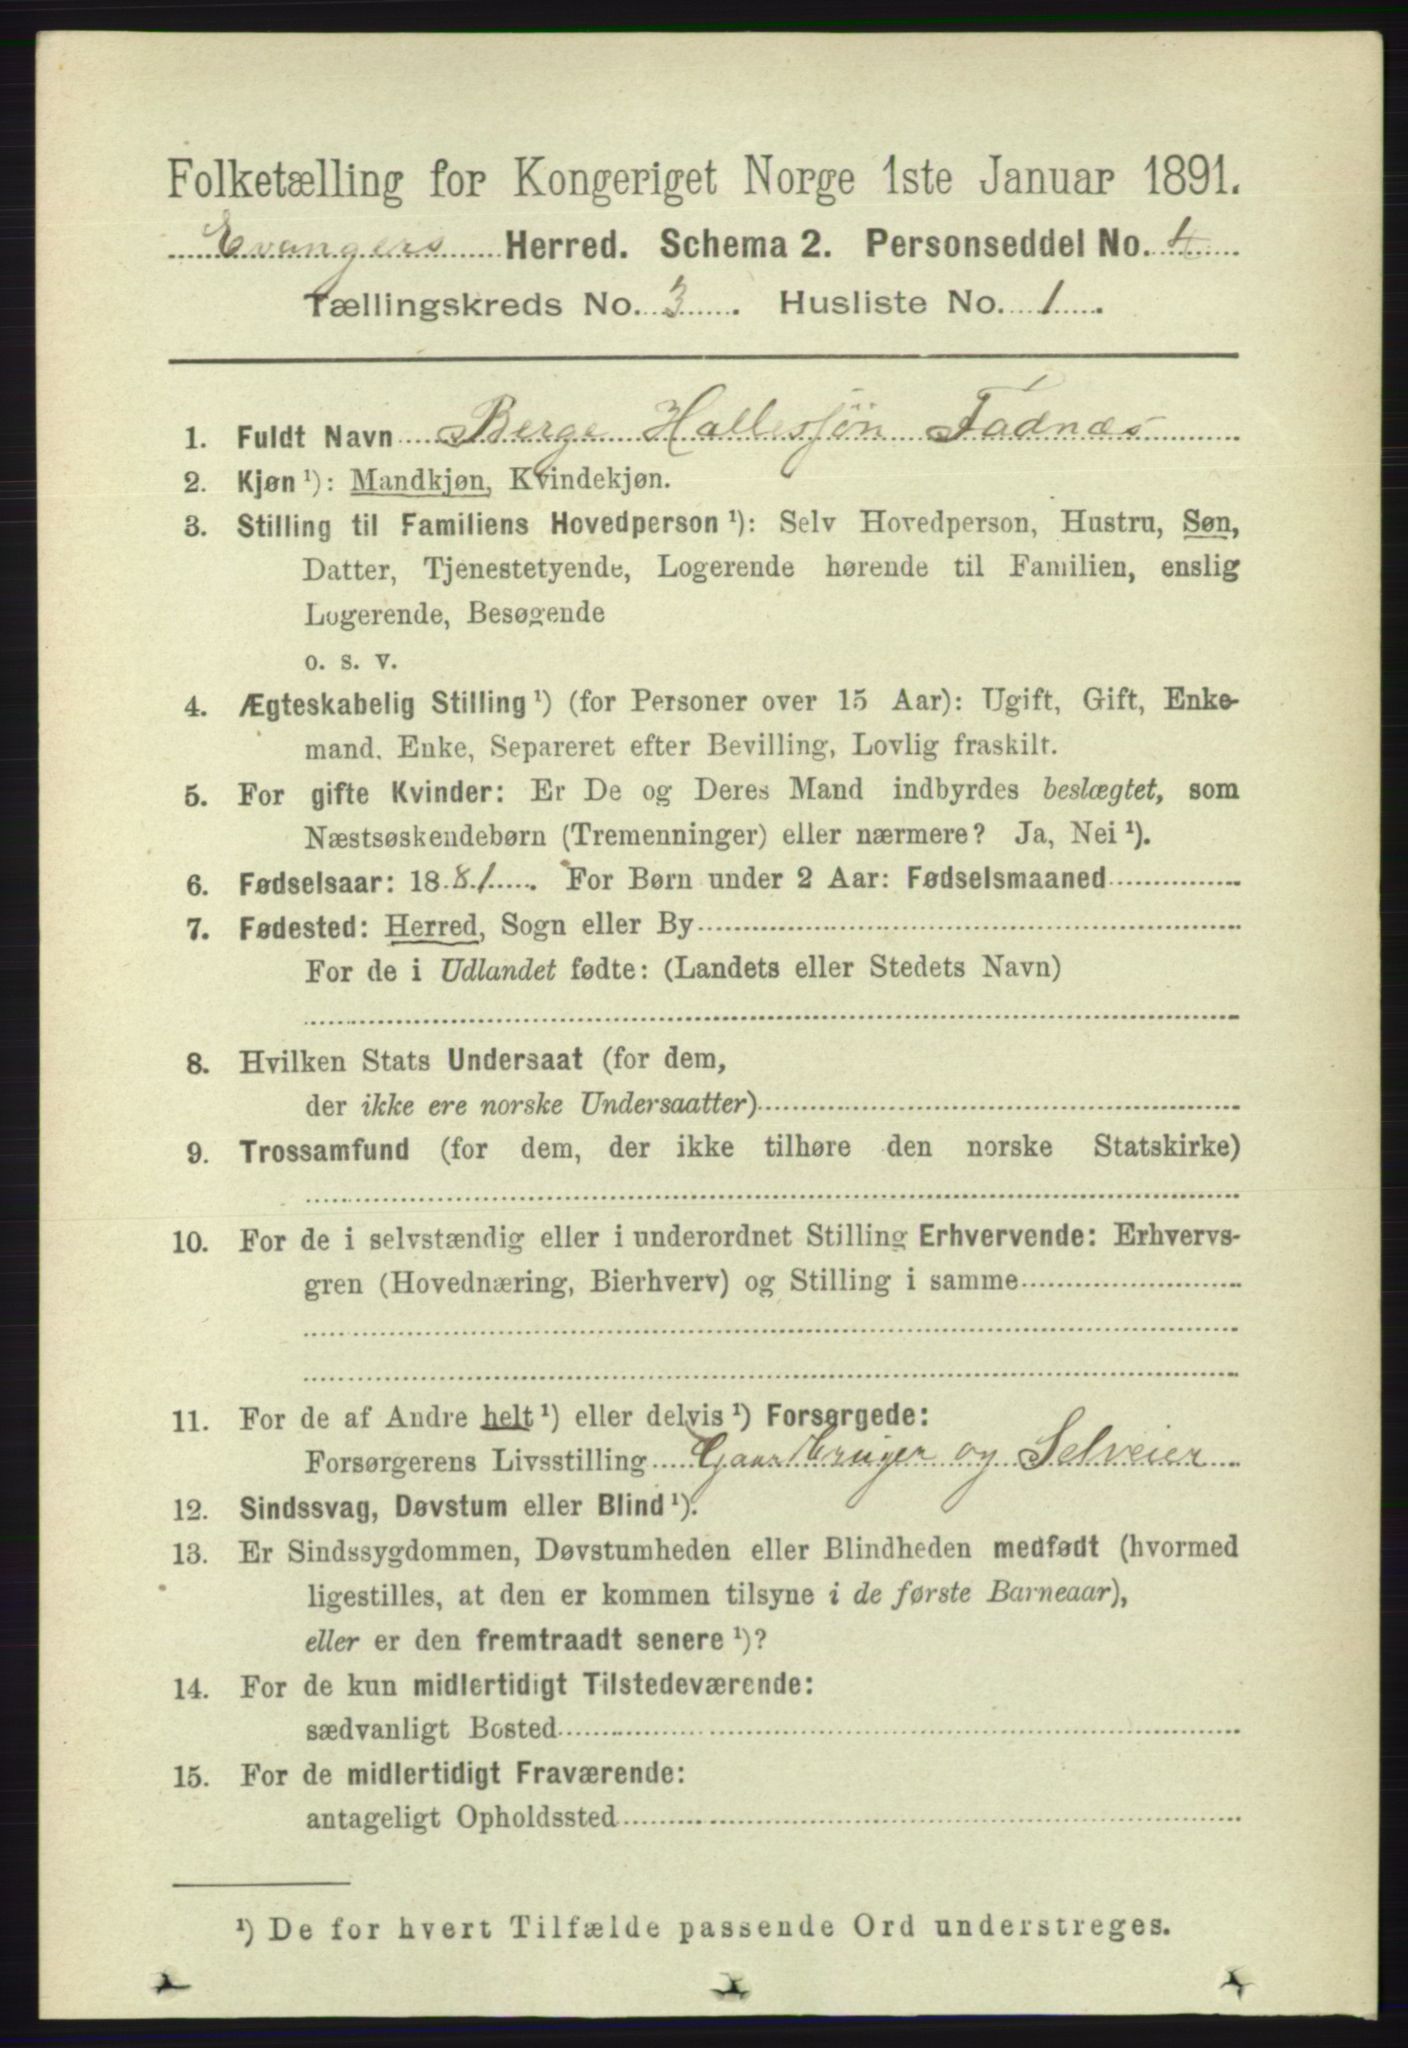 Folketælling for Kongeriget Norge 1ste Januar 1891.
Evangers Herred. Schema 2. Personseddel No. 4
Tællingskreds No. 3. Husliste No. 1.
1. Fuldt Navn Berge Hallessøn Fadnæs
2. Kjøn ¹): Mandkjøn, Kvindekjøn.
3. Stilling til Familiens Hovedperson ¹): Selv Hovedperson, Hustru, Søn,
Datter, Tjenestetyende, Logerende hørende til Familien, enslig
Logerende, Besøgende
o. s. v.
4. Ægteskabelig Stilling ¹) (for Personer over 15 Aar): Ugift, Gift, Enke-
mand, Enke, Separeret efter Bevilling, Lovlig fraskilt.
5. For gifte Kvinder: Er De og Deres Mand indbyrdes beslægtet, som
Næstsøskendebørn (Tremenninger) eller nærmere? Ja, Nei ¹).
6. Fødselsaar: 1881. For Børn under 2 Aar: Fødselsmaaned
7. Fødested: Herred, Sogn eller By
For de i Udlandet fødte: (Landets eller Stedets Navn)
8. Hvilken Stats Undersaat (for dem,
der ikke ere norske Undersaatter)
9. Trossamfund (for dem, der ikke tilhøre den norske Statskirke)
10. For de i selvstændig eller i underordnet Stilling Erhvervende: Erhvervs-
gren (Hovednæring, Bierhverv) og Stilling i samme
11. For de af Andre helt ¹) eller delvis ¹) Forsørgede:
Forsørgerens Livsstilling Gaardbruger og Selveier
12. Sindssvag, Døvstum eller Blind ¹).
13. Er Sindssygdommen, Døvstumheden eller Blindheden medfødt (hvormed
ligestilles, at den er kommen tilsyne i de første Barneaar),
eller er den fremtraadt senere ¹)?
14. For de kun midlertidigt Tilstedeværende:
sædvanligt Bosted
15. For de midlertidigt Fraværende:
antageligt Opholdssted
¹) De for hvert Tilfælde passende Ord understreges.